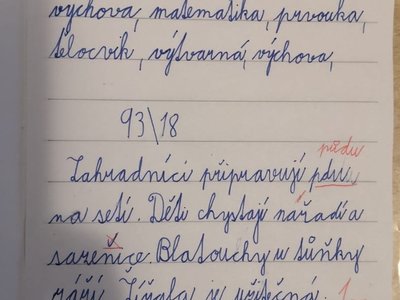 výchova, matematika, prvouka,
tělocvik, výtvarná, výchova,
93\18
půdu
Zahradníci připravují pdu
na setí. Děti chystají nářadí a
sazenice. Blatouchy u tůňky
září. Žížala je užitečná. 1